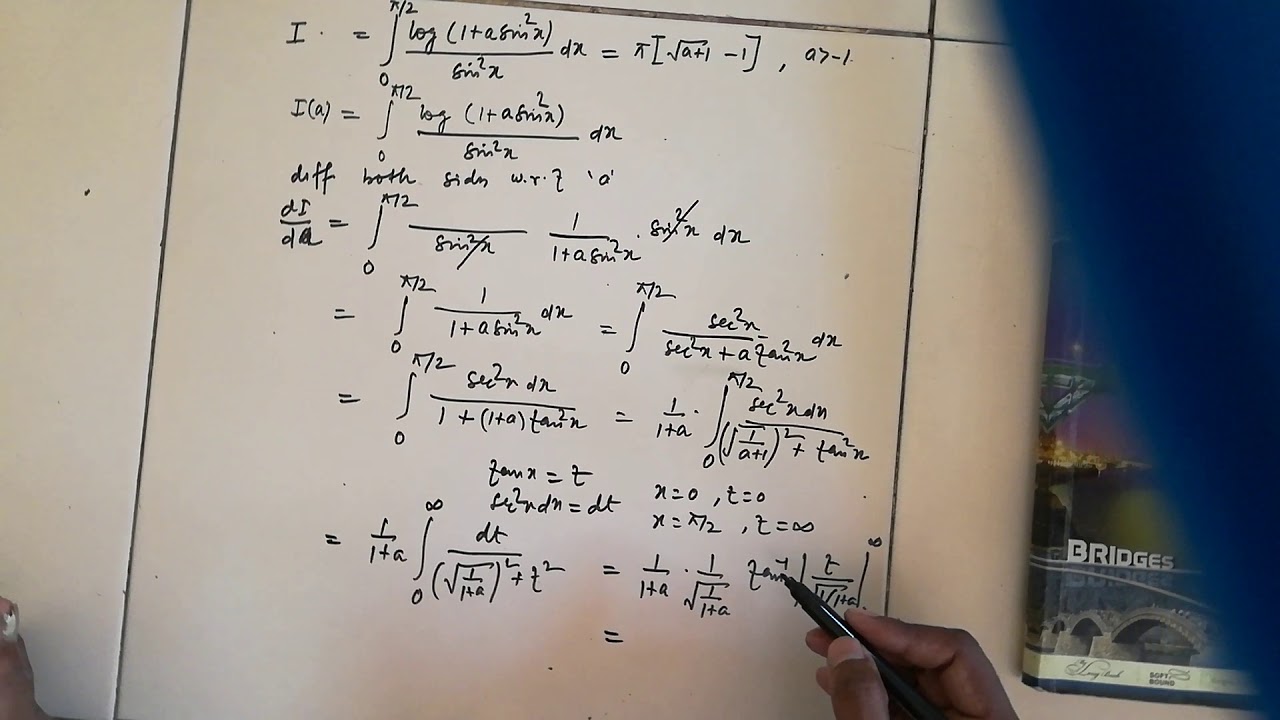 I = ∫₀^{π/2} log (1+a sin²x) / sin²x dx = π[√(a+1) − 1] , a>-1.
I(a) = ∫₀^{π/2} log (1+a sin²x) / sin²x dx
diff both sides w.r.t 'a'
dI/da = ∫₀^{π/2} 1/sin²x · 1/(1+a sin²x) · sin²x dx
= ∫₀^{π/2} 1/(1+a sin²x) dx = ∫₀^{π/2} sec²x / (sec²x + a tan²x) dx
= ∫₀^{π/2} sec²x dx / (1 + (1+a) tan²x) = 1/(1+a) · ∫₀^{π/2} sec²x dx / ((√(1/(a+1)))² + tan²x)
tan x = t
sec²x dx = dt
x=0 , t=0
x=π/2 , t=∞
= 1/(1+a) ∫₀^∞ dt / ((√(1/(1+a)))² + t²) = 1/(1+a) · 1/√(1/(1+a)) tan⁻¹ | t / √(1/(1+a)) |₀^∞
=
BRIDGES
SOFT
BOUND